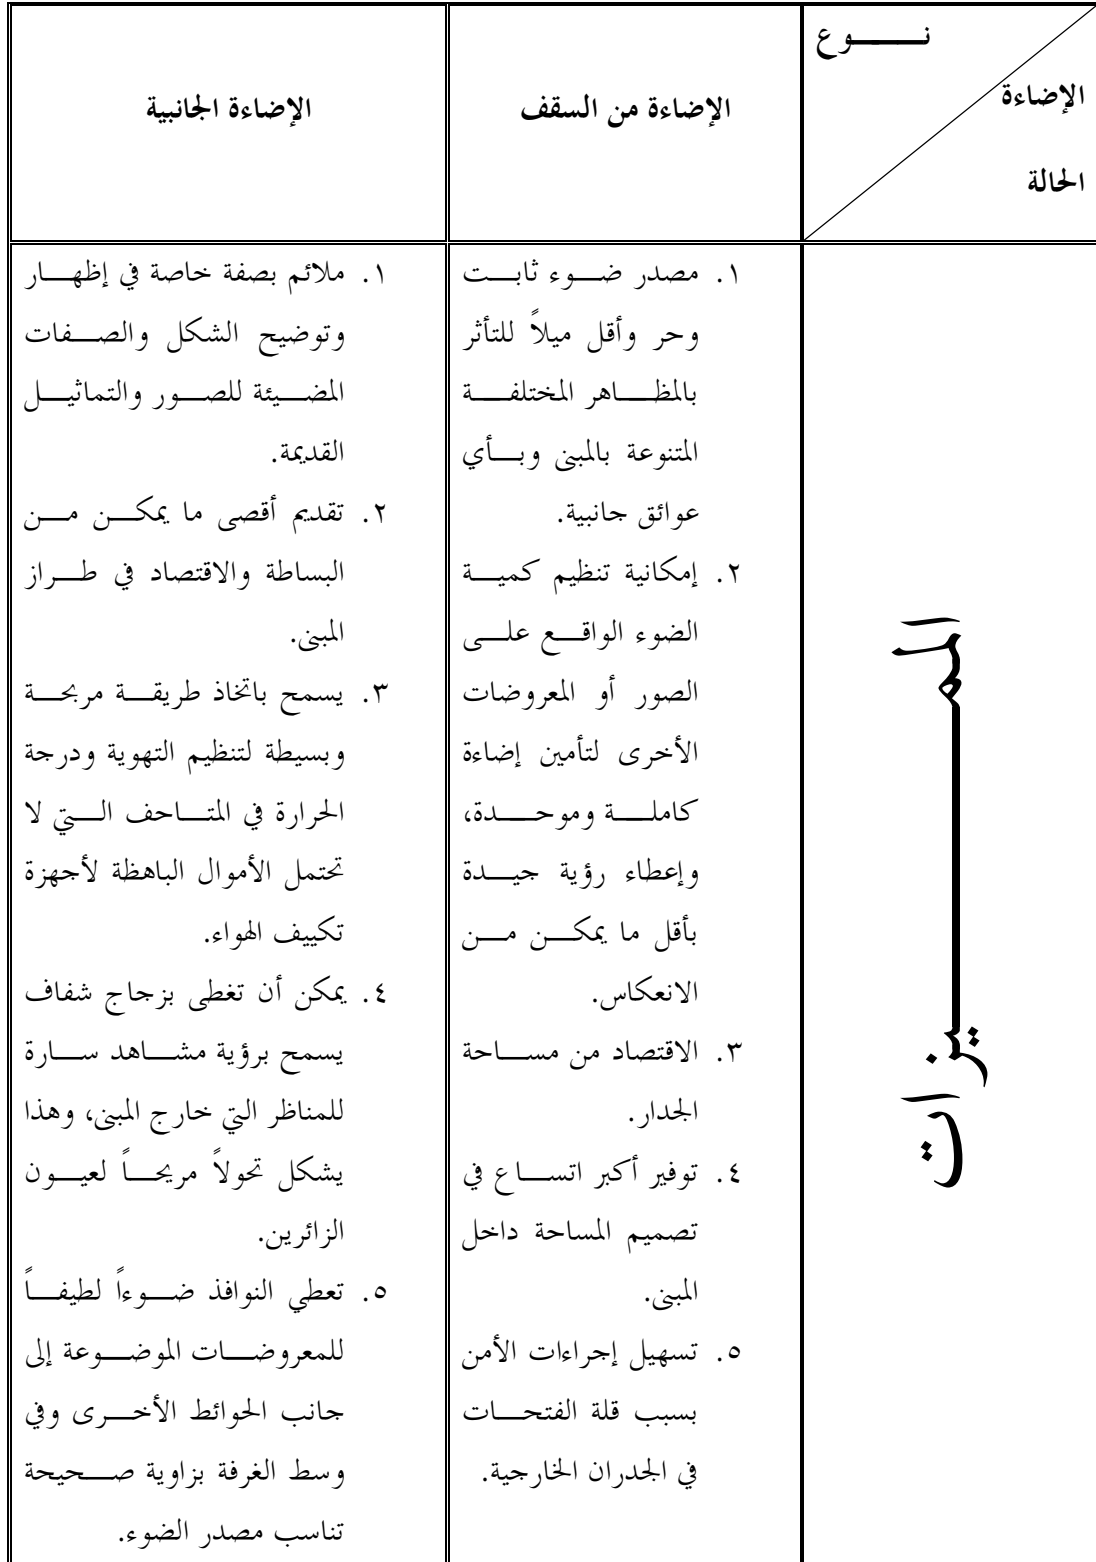 نوع
الإضاءة
الحالة
الإضاءة من السقف
الإضاءة الجانبية
المميزات
١. مصدر ضوء ثابت
وحر وأقل ميلاً للتأثر
بالمظاهر المختلفة
المتنوعة بالمبنى وبأي
عوائق جانبية.
٢. إمكانية تنظيم كمية
الضوء الواقع على
الصور أو المعروضات
الأخرى لتأمين إضاءة
كاملة وموحدة،
وإعطاء رؤية جيدة
بأقل ما يمكن من
الانعكاس.
٣. الاقتصاد من مساحة
الجدار.
٤. توفير أكبر اتساع في
تصميم المساحة داخل
المبنى.
٥. تسهيل إجراءات الأمن
بسبب قلة الفتحات
في الجدران الخارجية.
١. ملائم بصفة خاصة في إظهار
وتوضيح الشكل والصفات
المضيئة للصور والتماثيل
القديمة.
٢. تقديم أقصى ما يمكن من
البساطة والاقتصاد في طراز
المبنى.
٣. يسمح باتخاذ طريقة مربحة
وبسيطة لتنظيم التهوية ودرجة
الحرارة في المتاحف التي لا
تحتمل الأموال الباهظة لأجهزة
تكييف الهواء.
٤. يمكن أن تغطى بزجاج شفاف
يسمح برؤية مشاهد سارة
للمناظر التي خارج المبنى، وهذا
يشكل تحولاً مريحاً لعيون
الزائرين.
٥. تعطي النوافذ ضوءاً لطيفاً
للمعروضات الموضوعة إلى
جانب الحوائط الأخرى وفي
وسط الغرفة بزاوية صحيحة
تناسب مصدر الضوء.